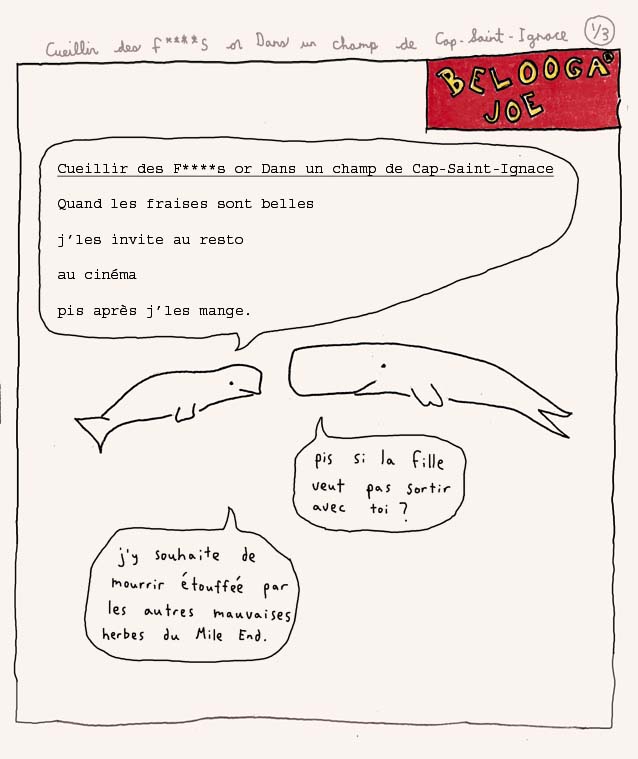 Cueillir des f****s or Dans un champ de Cap-Saint-Ignace 1/3
BELOOGA
JOE
Cueillir des F****s or Dans un champ de Cap-Saint-Ignace
Quand les fraises sont belles
j'les invite au resto
au cinéma
pis après j'les mange.
pis si la fille
veut pas sortir
avec toi ?
j'y souhaite de
mourrir étouffée par
les autres mauvaises
herbes du Mile End.